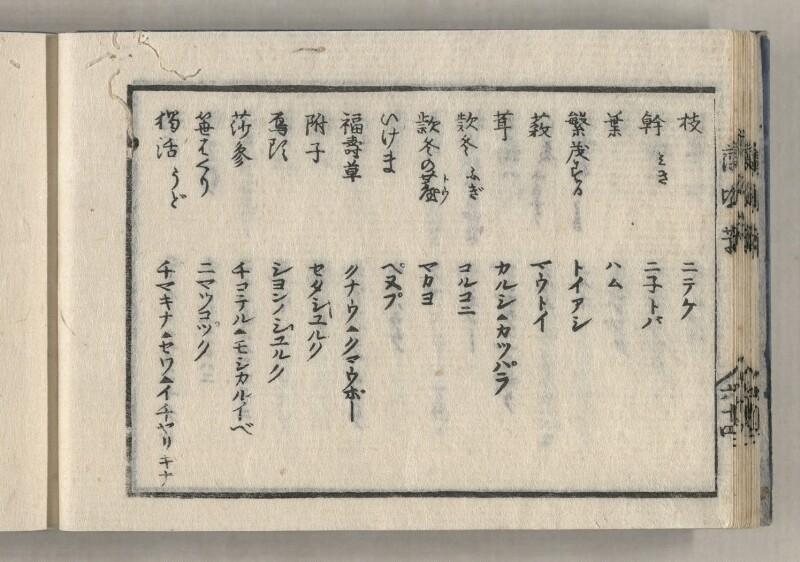 枝 ニテケ
幹 みき ニ子トパ
葉 ハム
繁茂する トイアシ
薮 マウトイ
茸 カルシ▲カツパラ
欵冬 ふぎ コルコニ
欵冬の薹 トウ マカヨ
いけま ペヌプ
福壽草 クナウ▲クマウポー
附子 セタシユルク
烏頭 シヨンノシユルク
莎参 チコテル▲モシカルイベ
笹はくり ニマツコツク
獨活 うど チマキナ▲セワ▲イチヤリキナ